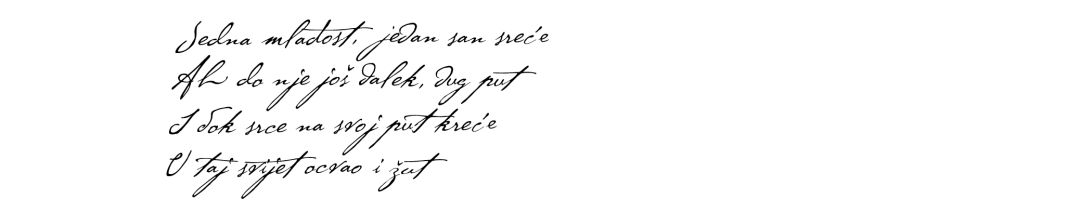 Jedna mladost, jedan san sreće
Al do nje još dalek, dug put
I dok srce na svoj put kreće
U taj svijet ocvao i žut